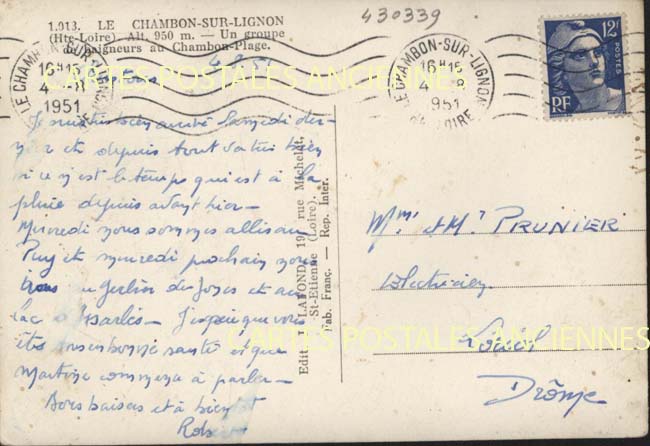 430339
1.013. LE CHAMBON-SUR-LIGNON
(Hte-Loire) Alt. 950 m. — Un groupe
de baigneurs au Chambon-Plage.
LE CHAMBON-SUR-LIGNON
16H15
4 - 8
1951
LE CHAMBON-SUR-LIGNON
16H15
4 8
951
LOIRE
12F
POSTES
RF
CARTES POSTALES ANCIENNES
Je suis très bien arrivé Samedi der-
nier et depuis tout va très bien
si ce n'est le temps qui est à la
pluie depuis avant hier —
Mercredi nous sommes allés au
Puy et mercredi prochain nous
irons au Gerbier de Joncs et au
lac d'Issarlès — J'espère que vous
êtes en bonne santé et que
Martine commence à parler —
Bons baisers et à bientôt
Edit. LAFOND, 19, rue Michelet,
St-Etienne (Loire).
Fab. Franç. — Rep. Inter.
Mme et Mr PRUNIER
électricien
Loriol
Drôme
CARTES POSTALES ANCIENNES